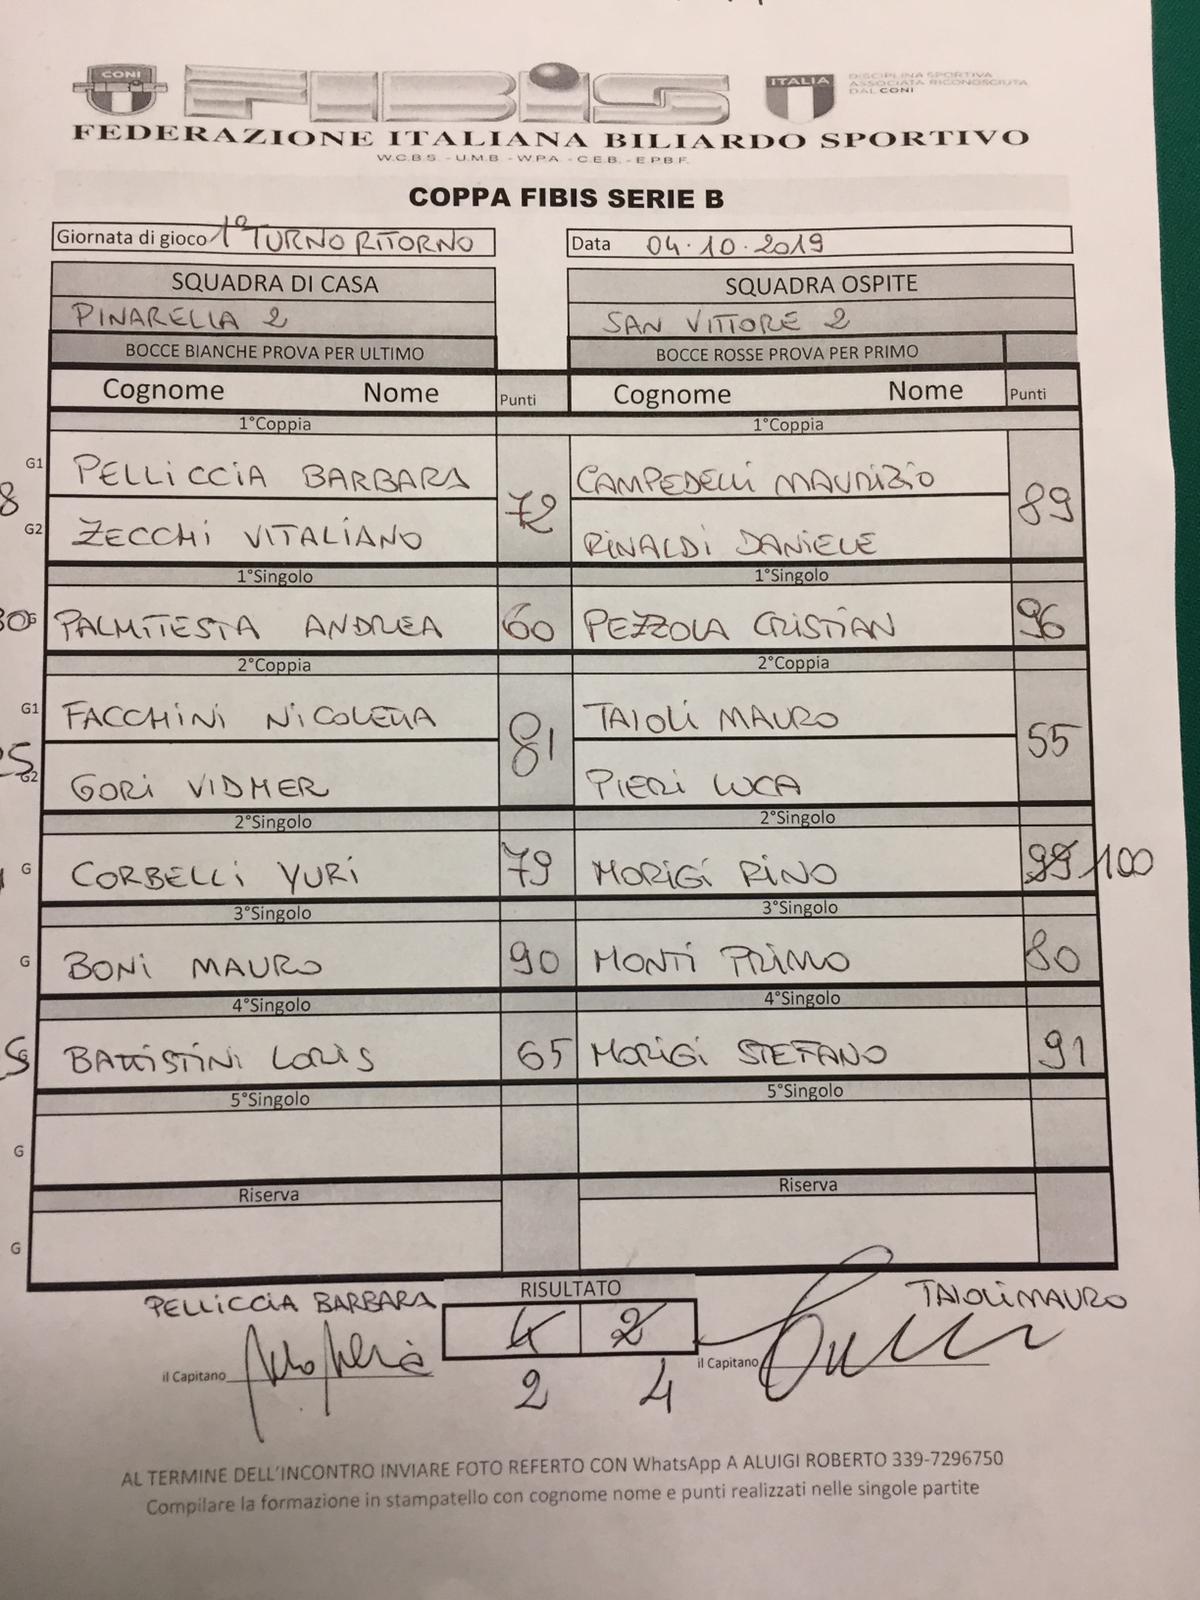 CONI FIBiS ITALIA DISCIPLINA SPORTIVA
ASSOCIATA RICONOSCIUTA
DAL CONI
FEDERAZIONE ITALIANA BILIARDO SPORTIVO
W.C.B.S. - U.M.B - W.P.A. - C.E.B. - E.P.B.F.
COPPA FIBIS SERIE B
Giornata di gioco 1° TURNO RITORNO Data 04.10.2019
SQUADRA DI CASA SQUADRA OSPITE
PINARELLA 2 SAN VITTORE 2
BOCCE BIANCHE PROVA PER ULTIMO BOCCE ROSSE PROVA PER PRIMO
Cognome Nome Punti Cognome Nome Punti
1°Coppia 1°Coppia
G1 PELLICCIA BARBARA 72 CAMPEDELLI MAURIZIO 89
G2 ZECCHI VITALIANO RINALDI DANIELE
1°Singolo 1°Singolo
G PALMITESTA ANDREA 60 PEZZOLA CRISTIAN 96
2°Coppia 2°Coppia
G1 FACCHINI NICOLETTA 81 TAIOLI MAURO 55
G2 GORI VIDMER PIERI LUCA
2°Singolo 2°Singolo
G CORBELLI YURI 79 MORIGI RINO 99 100
3°Singolo 3°Singolo
G BONI MAURO 90 MONTI PRIMO 80
4°Singolo 4°Singolo
G BATTISTINI LORIS 65 MORIGI STEFANO 91
5°Singolo 5°Singolo
G
Riserva Riserva
G
RISULTATO
PELLICCIA BARBARA 4 2 TAIOLI MAURO
il Capitano il Capitano
2 4
AL TERMINE DELL'INCONTRO INVIARE FOTO REFERTO CON WhatsApp A ALUIGI ROBERTO 339-7296750
Compilare la formazione in stampatello con cognome nome e punti realizzati nelle singole partite